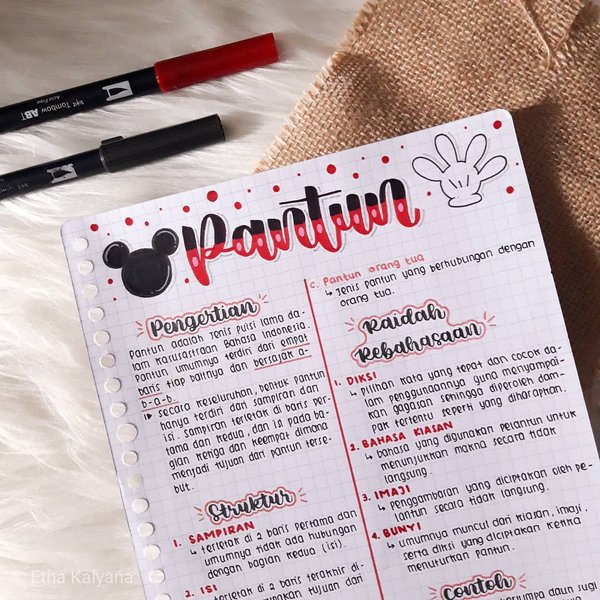 Tombow ABT
Acid Free
Pantun
Pengertian
Pantun adalah jenis puisi lama da-
lam kasusastraan Bahasa Indonesia.
Pantun umumnya terdiri dari empat
baris tiap baitnya dan bersajak a-
b-a-b.
secara keseluruhan, bentuk pantun
hanya terdiri dari sampiran dan
isi. sampiran terletak di baris per-
tama dan kedua, dan isi pada ba-
gian ketiga dan keempat dimana
menjadi tujuan dari pantun terse-
but.
Struktur
1. SAMPIRAN
↳ terletak di 2 baris pertama dan
umumnya tidak ada hubungan
dengan bagian kedua (isi).
2. ISI
↳ terletak di 2 baris terakhir di-
tujuan dari
c. Pantun orang tua
↳ Jenis pantun yang berhubungan dengan
orang tua.
Kaidah
Kebahasaan
1. DIKSI
↳ pilihan kata yang tepat dan cocok da-
lam penggunaannya guna menyampai-
kan gagasan sehingga diperoleh dam-
pak tertentu seperti yang diharapkan.
2. BAHASA KIASAN
↳ bahasa yang digunakan pelantun untuk
menunjukkan makna secara tidak
langsung.
3. IMAJI
↳ Penggambaran yang diciptakan oleh pe-
lantun secara tidak langsung.
4. BUNYI
↳ umumnya muncul dari kiasan, imaji,
serta diksi yang diciptakan ketika
menuturkan pantun.
Contoh
jumpa daun sugi
© Etha Kalyana